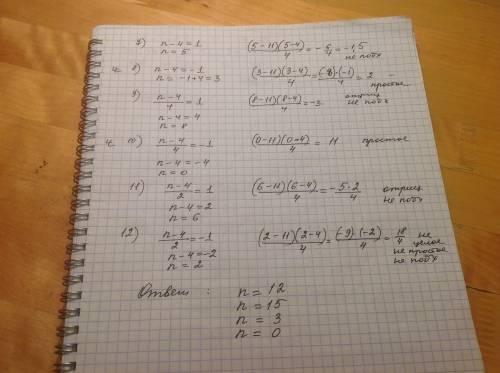 7) n-4=1 (5-11)(5-4)/4 = -6/4 = -1,5
n=5 не подх
ч. 8) n-4=-1 (3-11)(3-4)/4 = (-8)·(-1)/4 = 2 -
n=-1+4=3 простые
9) n-4/4 = 1 (8-11)(8-4)/4 = -3 отриц
n-4=4 не подх
n=8
ч. 10) n-4/4 = -1 (0-11)(0-4)/4 = 11 простое
n-4=-4
n=0
11) n-4/2 = 1 (6-11)(6-4)/4 = -5·2/4 отриц
n-4=2 не подх
n=6
12) n-4/2 = -1 (2-11)(2-4)/4 = (-9)·(-2)/4 = 18/4 не
n-4=-2 целое
n=2 не простое
не подх
Ответ: n=12
n=15
n=3
n=0